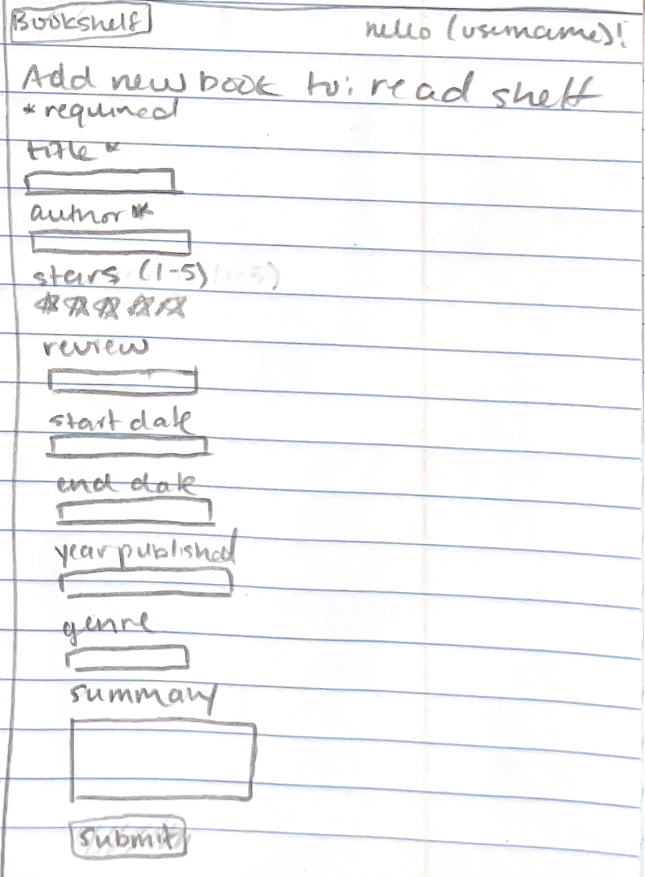 Bookshelf hello (username)!
Add new book to: read shelf
* required
title *
author *
stars (1-5)
review
start date
end date
year published
genre
summary
submit